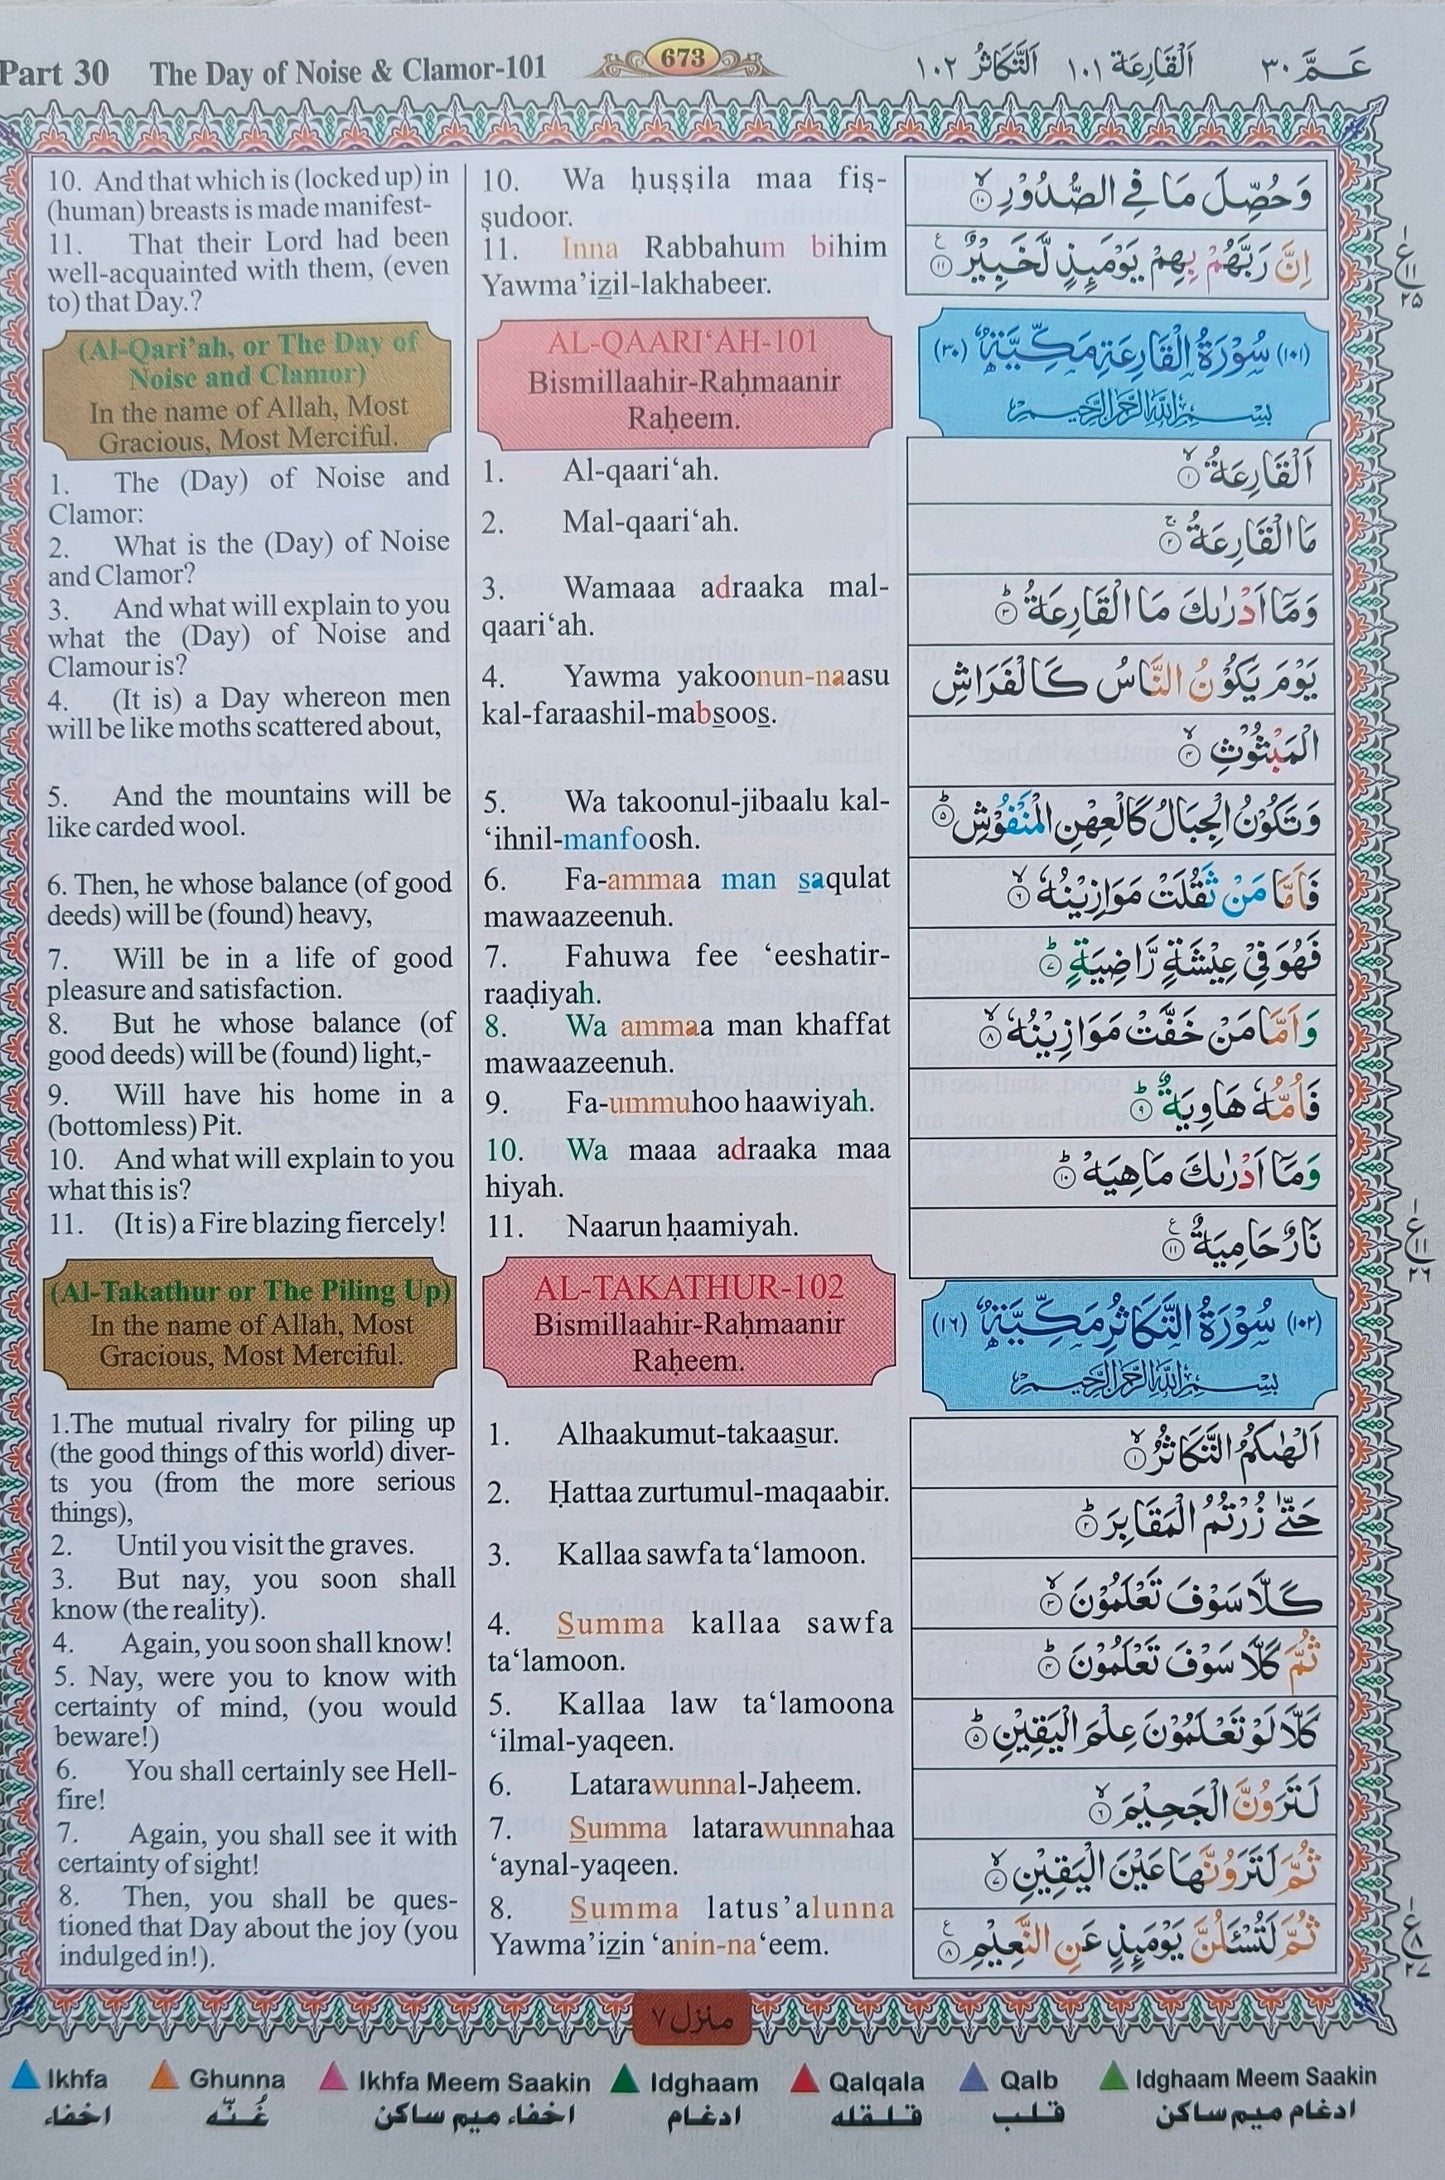 Part 30 The Day of Noise & Clamor-101
673
اَلْقَارِعَة ١٠١ اَلتَّكَاثُر ١٠٢
عَـمَّ ٣٠
10. And that which is (locked up) in
(human) breasts is made manifest-
11. That their Lord had been
well-acquainted with them, (even
to) that Day.?
(Al-Qari’ah, or The Day of
Noise and Clamor)
In the name of Allah, Most
Gracious, Most Merciful.
1. The (Day) of Noise and
Clamor:
2. What is the (Day) of Noise
and Clamor?
3. And what will explain to you
what the (Day) of Noise and
Clamour is?
4. (It is) a Day whereon men
will be like moths scattered about,
5. And the mountains will be
like carded wool.
6. Then, he whose balance (of good
deeds) will be (found) heavy,
7. Will be in a life of good
pleasure and satisfaction.
8. But he whose balance (of
good deeds) will be (found) light,-
9. Will have his home in a
(bottomless) Pit.
10. And what will explain to you
what this is?
11. (It is) a Fire blazing fiercely!
(Al-Takathur or The Piling Up)
In the name of Allah, Most
Gracious, Most Merciful.
1.The mutual rivalry for piling up
(the good things of this world) diver-
ts you (from the more serious
things),
2. Until you visit the graves.
3. But nay, you soon shall
know (the reality).
4. Again, you soon shall know!
5. Nay, were you to know with
certainty of mind, (you would
beware!)
6. You shall certainly see Hell-
fire!
7. Again, you shall see it with
certainty of sight!
8. Then, you shall be ques-
tioned that Day about the joy (you
indulged in!).
10. Wa ḥuṣṣila maa fiṣ-
ṣudoor.
11. Inna Rabbahum bihim
Yawma’izil-lakhabeer.
AL-QAARI‘AH-101
Bismillaahir-Raḥmaanir
Raḥeem.
1. Al-qaari‘ah.
2. Mal-qaari‘ah.
3. Wamaaa adraaka mal-
qaari‘ah.
4. Yawma yakoonun-naasu
kal-faraashil-mabsoos.
5. Wa takoonul-jibaalu kal-
‘ihnil-manfoosh.
6. Fa-ammaa man saqulat
mawaazeenuh.
7. Fahuwa fee ‘eeshatir-
raaḍiyah.
8. Wa ammaa man khaffat
mawaazeenuh.
9. Fa-ummuhoo haawiyah.
10. Wa maaa adraaka maa
hiyah.
11. Naarun ḥaamiyah.
AL-TAKATHUR-102
Bismillaahir-Raḥmaanir
Raḥeem.
1. Alhaakumut-takaasur.
2. Ḥattaa zurtumul-maqaabir.
3. Kallaa sawfa ta‘lamoon.
4. Summa kallaa sawfa
ta‘lamoon.
5. Kallaa law ta‘lamoona
‘ilmal-yaqeen.
6. Latarawunnal-Jaḥeem.
7. Summa latarawunnahaa
‘aynal-yaqeen.
8. Summa latus’alunna
Yawma’izin ‘anin-na‘eem.
وَحُصِّلَ مَا فِي الصُّدُوْرِ ۙ۝١٠
اِنَّ رَبَّهُمْ بِهِمْ يَوْمَىِٕذٍ لَّخَبِيْرٌ ۧ۝١١
(١٠١) سُوْرَةُ الْقَارِعَةِ مَكِّيَّةٌ (٣٠)
بِسْمِ اللّٰهِ الرَّحْمٰنِ الرَّحِيْمِ
اَلْقَارِعَةُ ۙ۝١
مَا الْقَارِعَةُ ۚ۝٢
وَمَآ اَدْرٰىكَ مَا الْقَارِعَةُ ؕ۝٣
يَوْمَ يَكُوْنُ النَّاسُ كَالْفَرَاشِ
الْمَبْثُوْثِ ۙ۝٤
وَتَكُوْنُ الْجِبَالُ كَالْعِهْنِ الْمَنْفُوْشِ ؕ۝٥
فَاَمَّا مَنْ ثَقُلَتْ مَوَازِيْنُهٗ ۙ۝٦
فَهُوَ فِيْ عِيْشَةٍ رَّاضِيَةٍ ؕ۝٧
وَاَمَّا مَنْ خَفَّتْ مَوَازِيْنُهٗ ۙ۝٨
فَاُمُّهٗ هَاوِيَةٌ ؕ۝٩
وَمَآ اَدْرٰىكَ مَا هِيَهْ ؕ۝١٠
نَارٌ حَامِيَةٌ ۧ۝١١
(١٠٢) سُوْرَةُ التَّكَاثُرِ مَكِّيَّةٌ (١٦)
بِسْمِ اللّٰهِ الرَّحْمٰنِ الرَّحِيْمِ
اَلْهٰىكُمُ التَّكَاثُرُ ۙ۝١
حَتّٰى زُرْتُمُ الْمَقَابِرَ ؕ۝٢
كَلَّا سَوْفَ تَعْلَمُوْنَ ۙ۝٣
ثُمَّ كَلَّا سَوْفَ تَعْلَمُوْنَ ؕ۝٤
كَلَّا لَوْ تَعْلَمُوْنَ عِلْمَ الْيَقِيْنِ ؕ۝٥
لَتَرَوُنَّ الْجَحِيْمَ ۙ۝٦
ثُمَّ لَتَرَوُنَّهَا عَيْنَ الْيَقِيْنِ ۙ۝٧
ثُمَّ لَتُسْـَٔلُنَّ يَوْمَىِٕذٍ عَنِ النَّعِيْمِ ۧ۝٨
١ ع ١١ ٢٥
١ ع ١١ ٢٦
١ ع ٨ ٢٧
منزل ٧
Ikhfa Ghunna Ikhfa Meem Saakin Idghaam Qalqala Qalb Idghaam Meem Saakin
اخفاء غُنّه اخفاء ميم ساكن ادغام قلقله قلب ادغام ميم ساكن